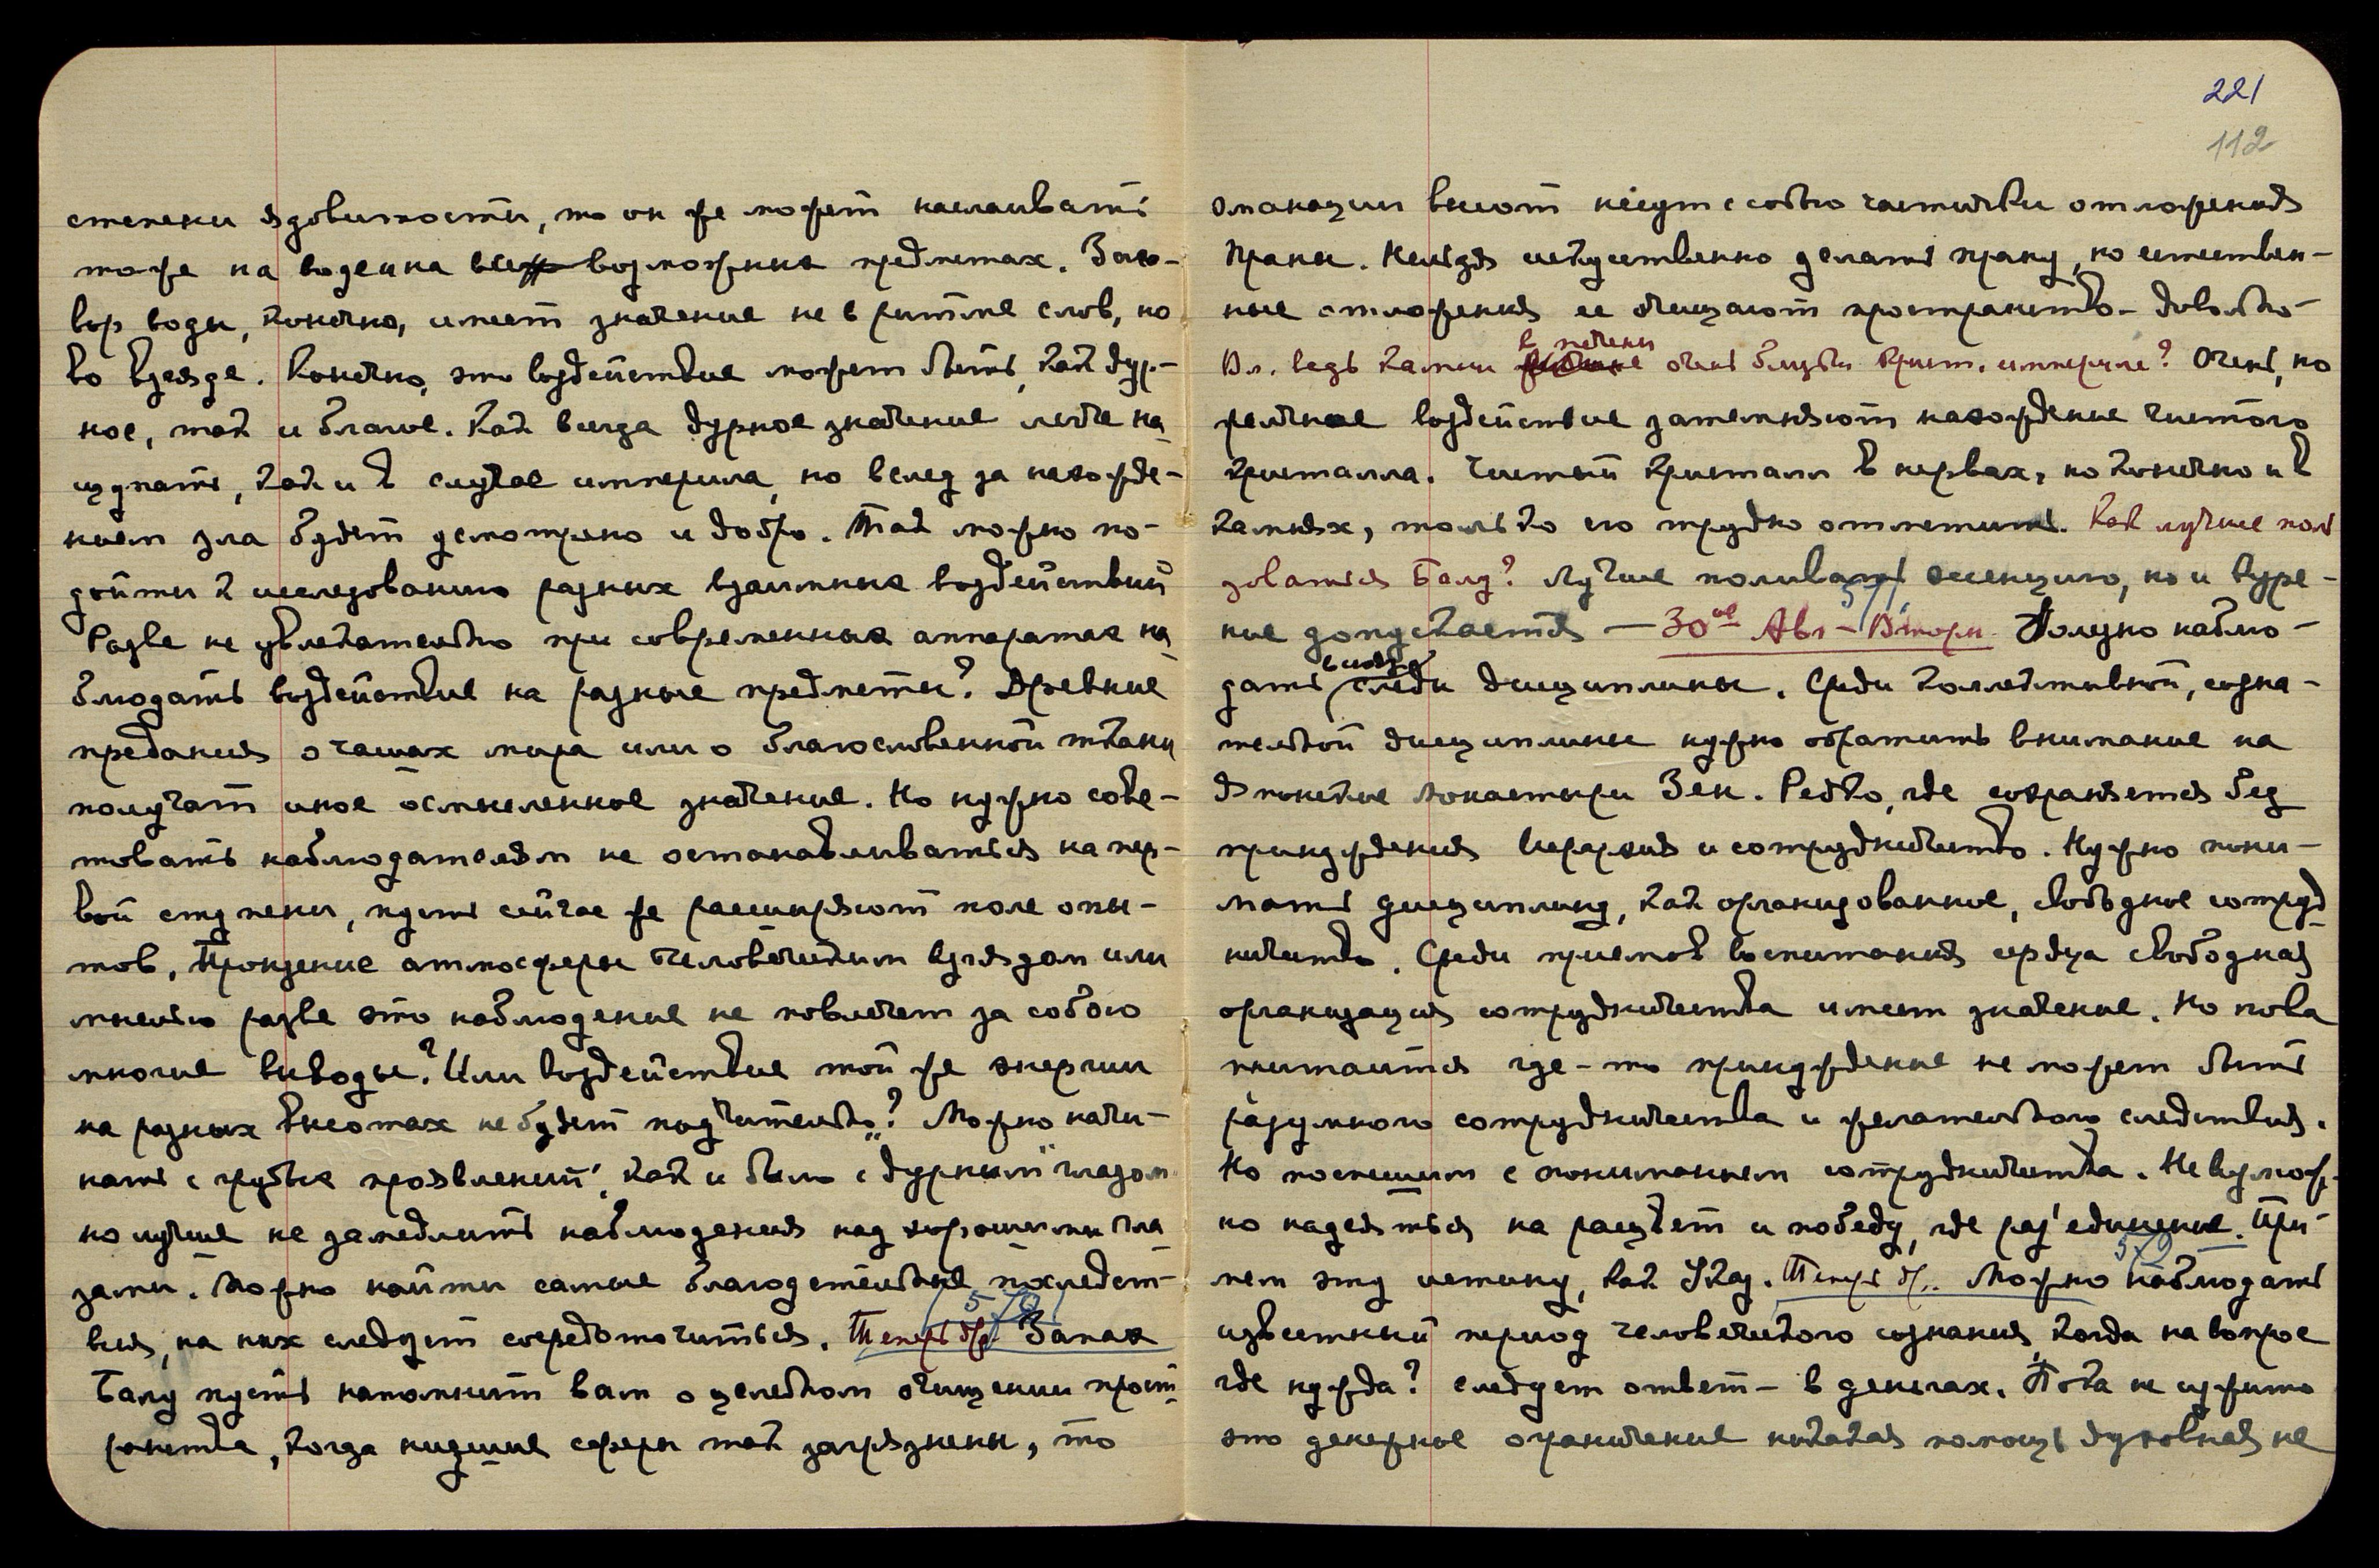 221
112
степени ядовитости, то он же может наслаивать
тоже на воде и на всевозможных предметах. Заго-
вор воды, конечно, имеет значение не в ритме слов, но
во взгляде. Конечно, это воздействие может быть, как дур-
ное, так и благое. Как всегда дурное значение легче на
щупать, как и в случае империла, но вслед за нахожде-
нием зла будет усмотрено и добро. Так можно по-
дойти к исследованию разных взаимных воздействий
Разве не увлекательно при современных аппаратах на
блюдать воздействие на разные предметы? Древние
предания о чашах мира или о благословенной ткани
получат иное осмысленное значение. Но нужно сове-
товать наблюдателям не останавливаться на пер-
вой ступени, пусть сейчас же расширяют поле опы-
тов. Пронзение атмосферы человеческим взглядом или
мыслью разве это наблюдение не повлечет за собою
многие выводы? Или воздействие той же энергии
на разных высотах не будет поучительно? Можно начи-
нать с грубых проявлений, как и было с „дурным" глазом
но лучше не замедлить наблюдения над хорошими гла
зами. Можно найти самые благодетельные последст-
вия, на них следует сосредоточиться. Теперь др. 570 Запах
Балу пусть напомнит вам о целебном очищении прост
ранства, когда низшие сферы так загрязнены, то
эманации высот несут с собою частички отложения
Праны. Нельзя искусственно делать прану, но естествен-
ные отложения ее очищают пространство - довольно -
Вл. ведь камни в печени очень близки крист. империле? Очень, но
желчное воздействие затемняют нахождение чистого
кристалла. Чистый кристалл в нервах, но конечно и в
камнях, только его трудно отметить. Как лучше поль
зоваться Балу? Лучше поливать эссенцию, но и куре-
ние допускается — 30ое Авг - Вторн. 571 Полезно наблю-
дать всюду следы дисциплины. Среди коллективной, созна-
тельной дисциплины нужно обратить внимание на
Японские монастыри Зен. Редко, где сохраняется без
принуждения иерархия и сотрудничество. Нужно пони-
мать дисциплину, как организованное, свободное сотруд
ничество. Среди приемов воспитания сердца свободная
организация сотрудничества имеет значение. Но пока
гнитается где-то принуждение не может быть
разумного сотрудничества и желательного следствия.
Но поспешим с пониманием сотрудничества. Невозмож-
но надеяться на расцвет и победу, где раз'единение. При-
мем эту истину, как Указ. Теперь др. 572 Можно наблюдать
известный период человеческого сознания, когда на вопрос
где нужда? следует ответ - в деньгах. Пока не изжито
это денежное ограничение никакая помощь духовная не